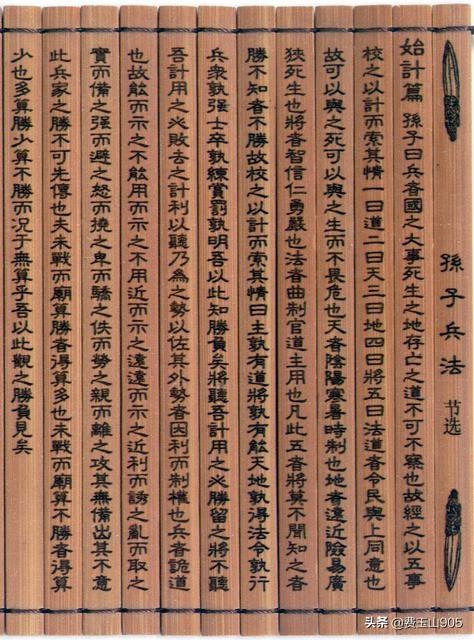 孫子兵法 节选
始計篇 孫子曰兵者國之大事死生之地存亡之道不可不察也故經之以五事
校之以計而索其情一曰道二曰天三曰地四曰將五曰法道者令民與上同意也
故可以與之死可以與之生而不畏危也天者陰陽寒暑時制也地者遠近險易廣
狹死生也將者智信仁勇嚴也法者曲制官道主用也凡此五者將莫不聞知之者
勝不知者不勝故校之以計而索其情曰主孰有道將孰有能天地孰得法令孰行
兵眾孰强士卒孰練賞罰孰明吾以此知勝負矣將聽吾計用之必勝留之將不聽
吾計用之必敗去之計利以聽乃為之勢以佐其外勢者因利而制權也兵者詭道
也故能而示之不能用而示之不用近而示之遠遠而示之近利而誘之亂而取之
實而備之强而避之怒而撓之卑而驕之佚而勞之親而離之攻其無備出其不意
此兵家之勝不可先傳也夫未戰而廟算勝者得算多也未戰而廟算不勝者得算
少也多算勝少算不勝而況于無算乎吾以此觀之勝負見矣
头条 @费玉山905